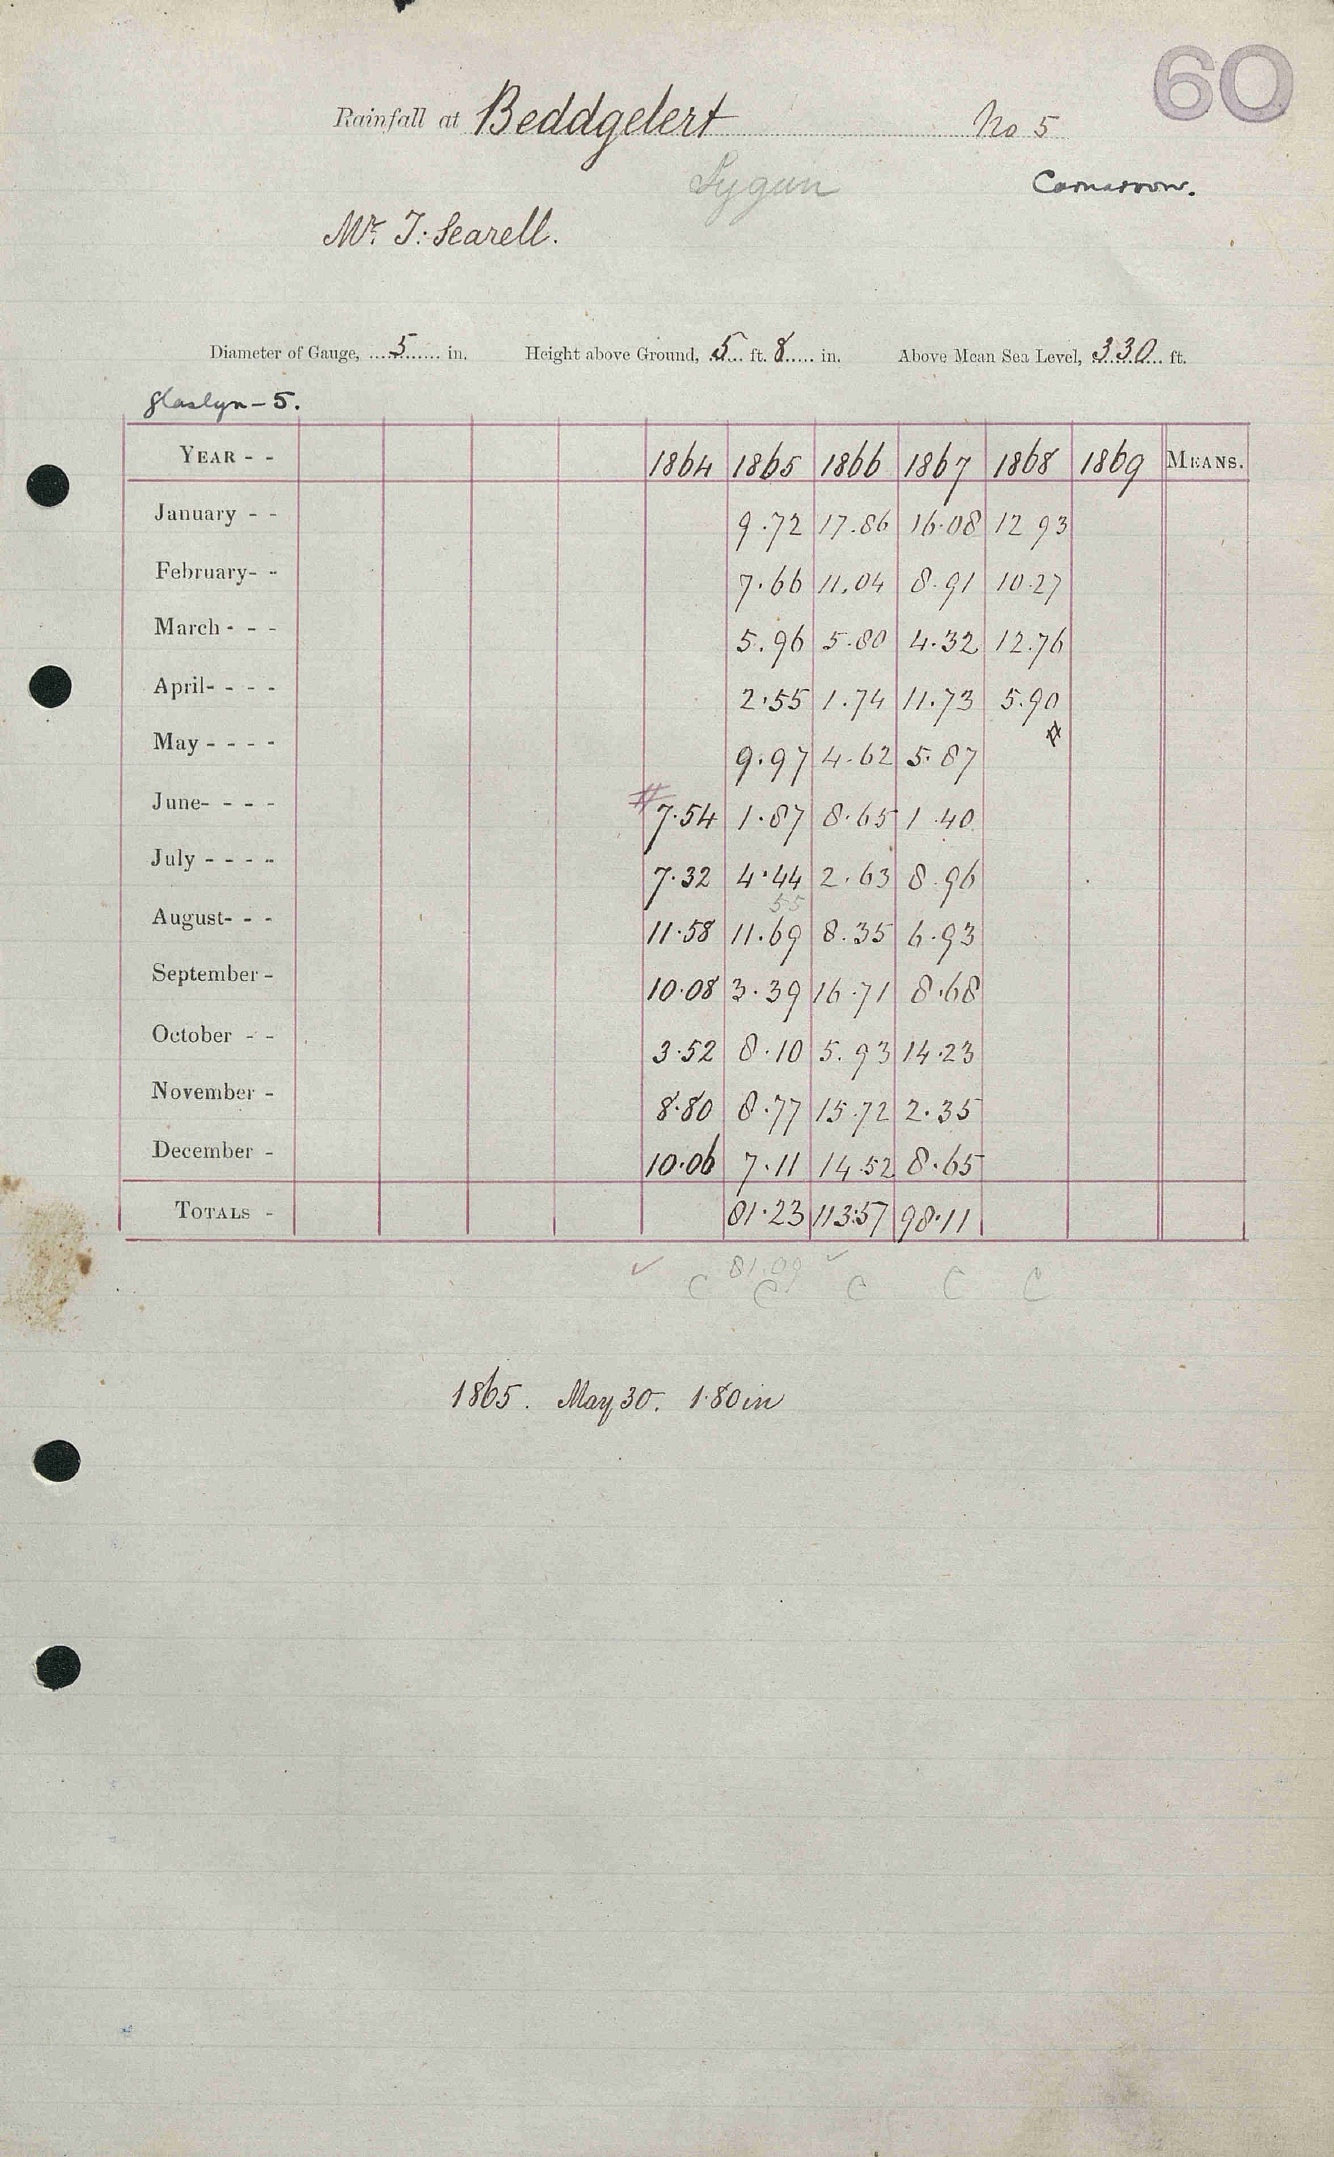 60
Rainfall at Beddgelert No 5
Sygun Carnarvon.
Mr. T. Searell.
Diameter of Gauge, 5 in. Height above Ground, 5 ft. 8 in. Above Mean Sea Level, 330 ft.
Glaslyn - 5.
YEAR - - 1864 1865 1866 1867 1868 1869 MEANS.
January - - 9.72 17.86 16.08 12 93
February - - 7.66 11.04 8.91 10.27
March - - - 5.96 5.80 4.32 12.76
April - - - - 2.55 1.74 11.73 5.90
May - - - - 9.97 4.62 5.87
June - - - - # 7.54 1.87 8.65 1.40
July - - - - 7.32 4.44 2.63 8.96
55
August - - - 11.58 11.69 8.35 6.93
September - 10.08 3.39 16.71 8.68
October - - 3.52 8.10 5.93 14.23
November - 8.80 8.77 15.72 2.35
December - 10.06 7.11 14.52 8.65
TOTALS - 81.23 113.57 98.11
81.09
C C C C C
1865. May 30. 1.80 in